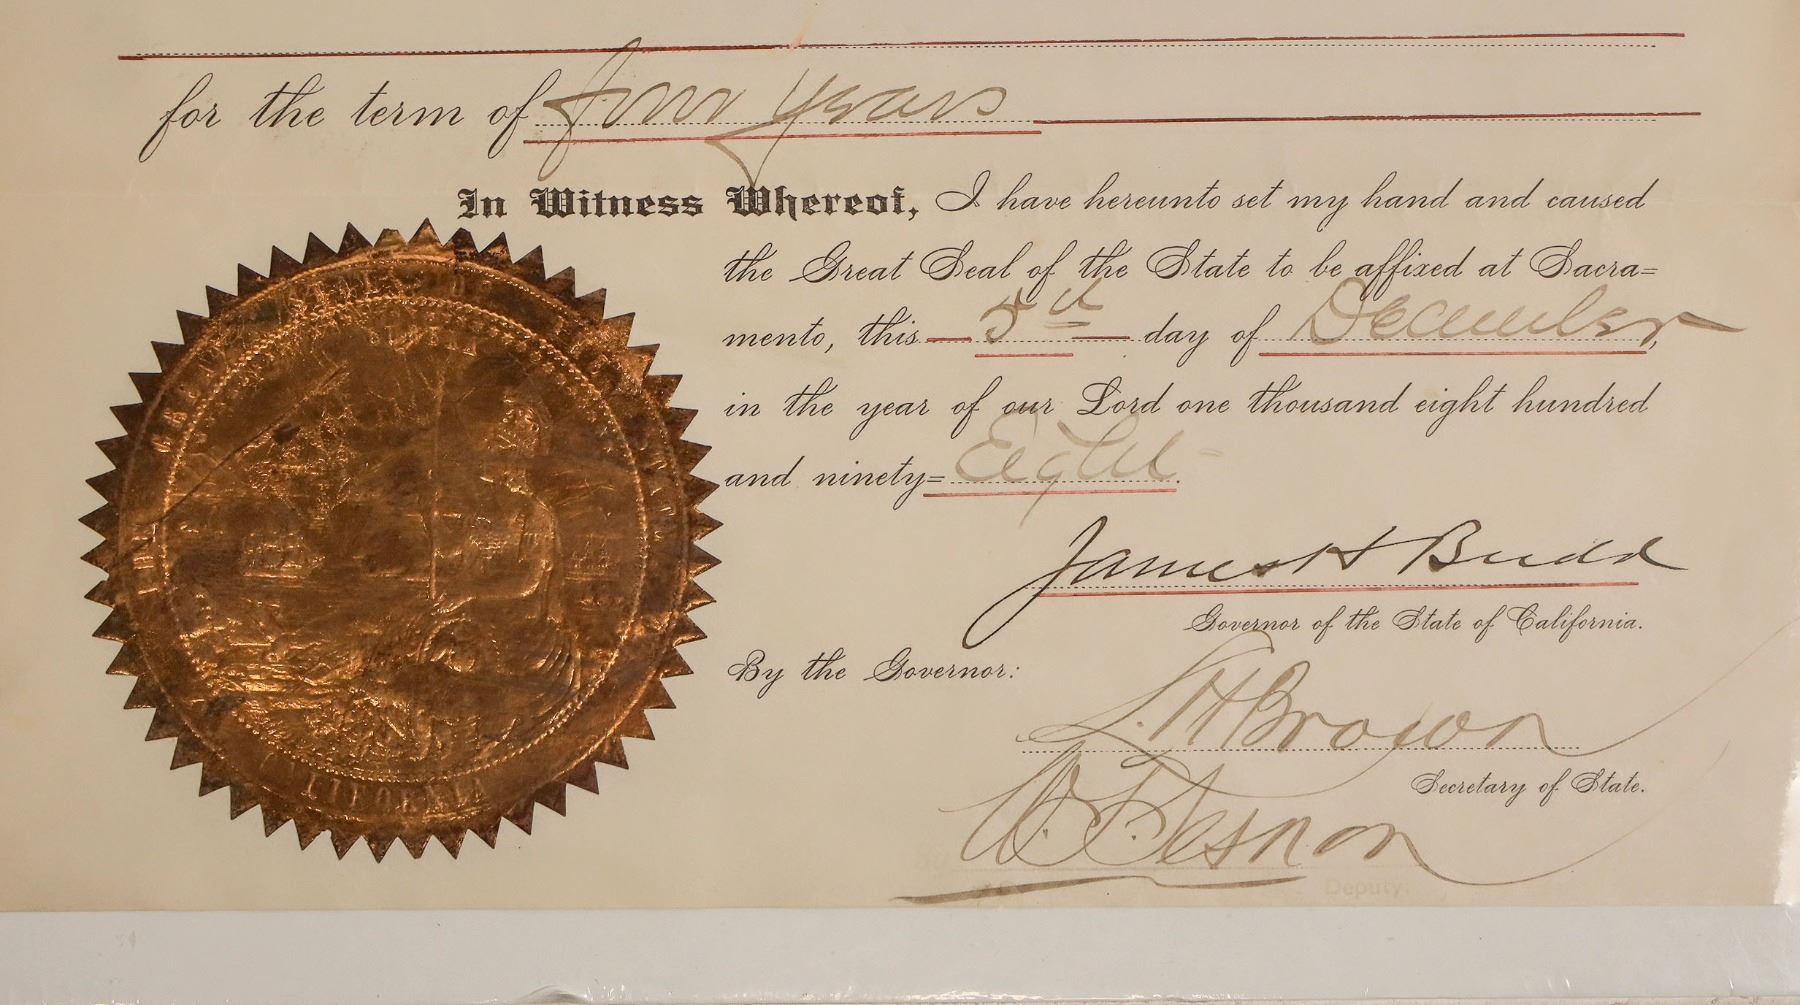 for the term of four years
In Witness Whereof, I have hereunto set my hand and caused
the Great Seal of the State to be affixed at Sacra=
mento, this 5th day of December,
in the year of our Lord one thousand eight hundred
and ninety=Eight.
James H Budd
Governor of the State of California.
By the Governor:
L. H Brown
Secretary of State.
Deputy.
THE GREAT SEAL OF THE STATE
CALIFORNIA